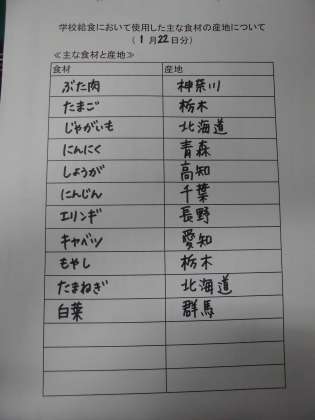 学校給食において使用した主な食材の産地について
( 1 月 22 日分)
≪主な食材と産地≫
食材 産地
ぶた肉 神奈川
たまご 栃木
じゃがいも 北海道
にんにく 青森
しょうが 高知
にんじん 千葉
エリンギ 長野
キャベツ 愛知
もやし 栃木
たまねぎ 北海道
白菜 群馬